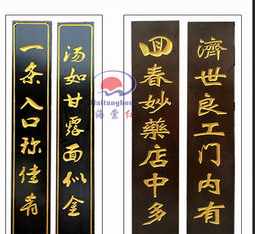 汤如甘露面似金
一条入口弥佳肴
濟世良工门内有
回春妙藥店中多